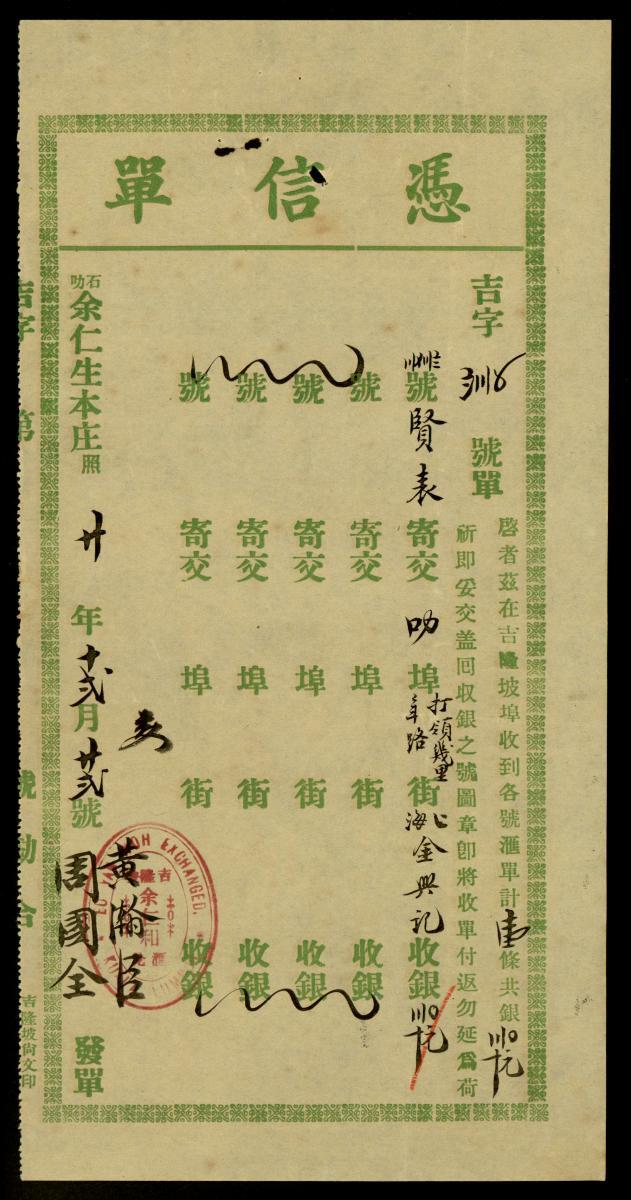 憑信單
吉字 〣〨 號單
啓者茲在吉隆坡埠收到各號滙單計壹條共銀
祈即妥交盖回收銀之號圖章卽將收單付返勿延爲荷
號 賢表 寄交 叻 埠 打領幾里 街 海 金興記 收銀
號 寄交 埠 街 收銀
號 寄交 埠 街 收銀
號 寄交 埠 街 收銀
號 寄交 埠 街 收銀
石叻 余仁生本庄照
廿 年 十弍 月 廿弍 號
黄瀚臣
周國全
發單
EXCHANGED.
吉隆
余仁和
滙
吉字 第 號 勘合
吉隆坡尙文印